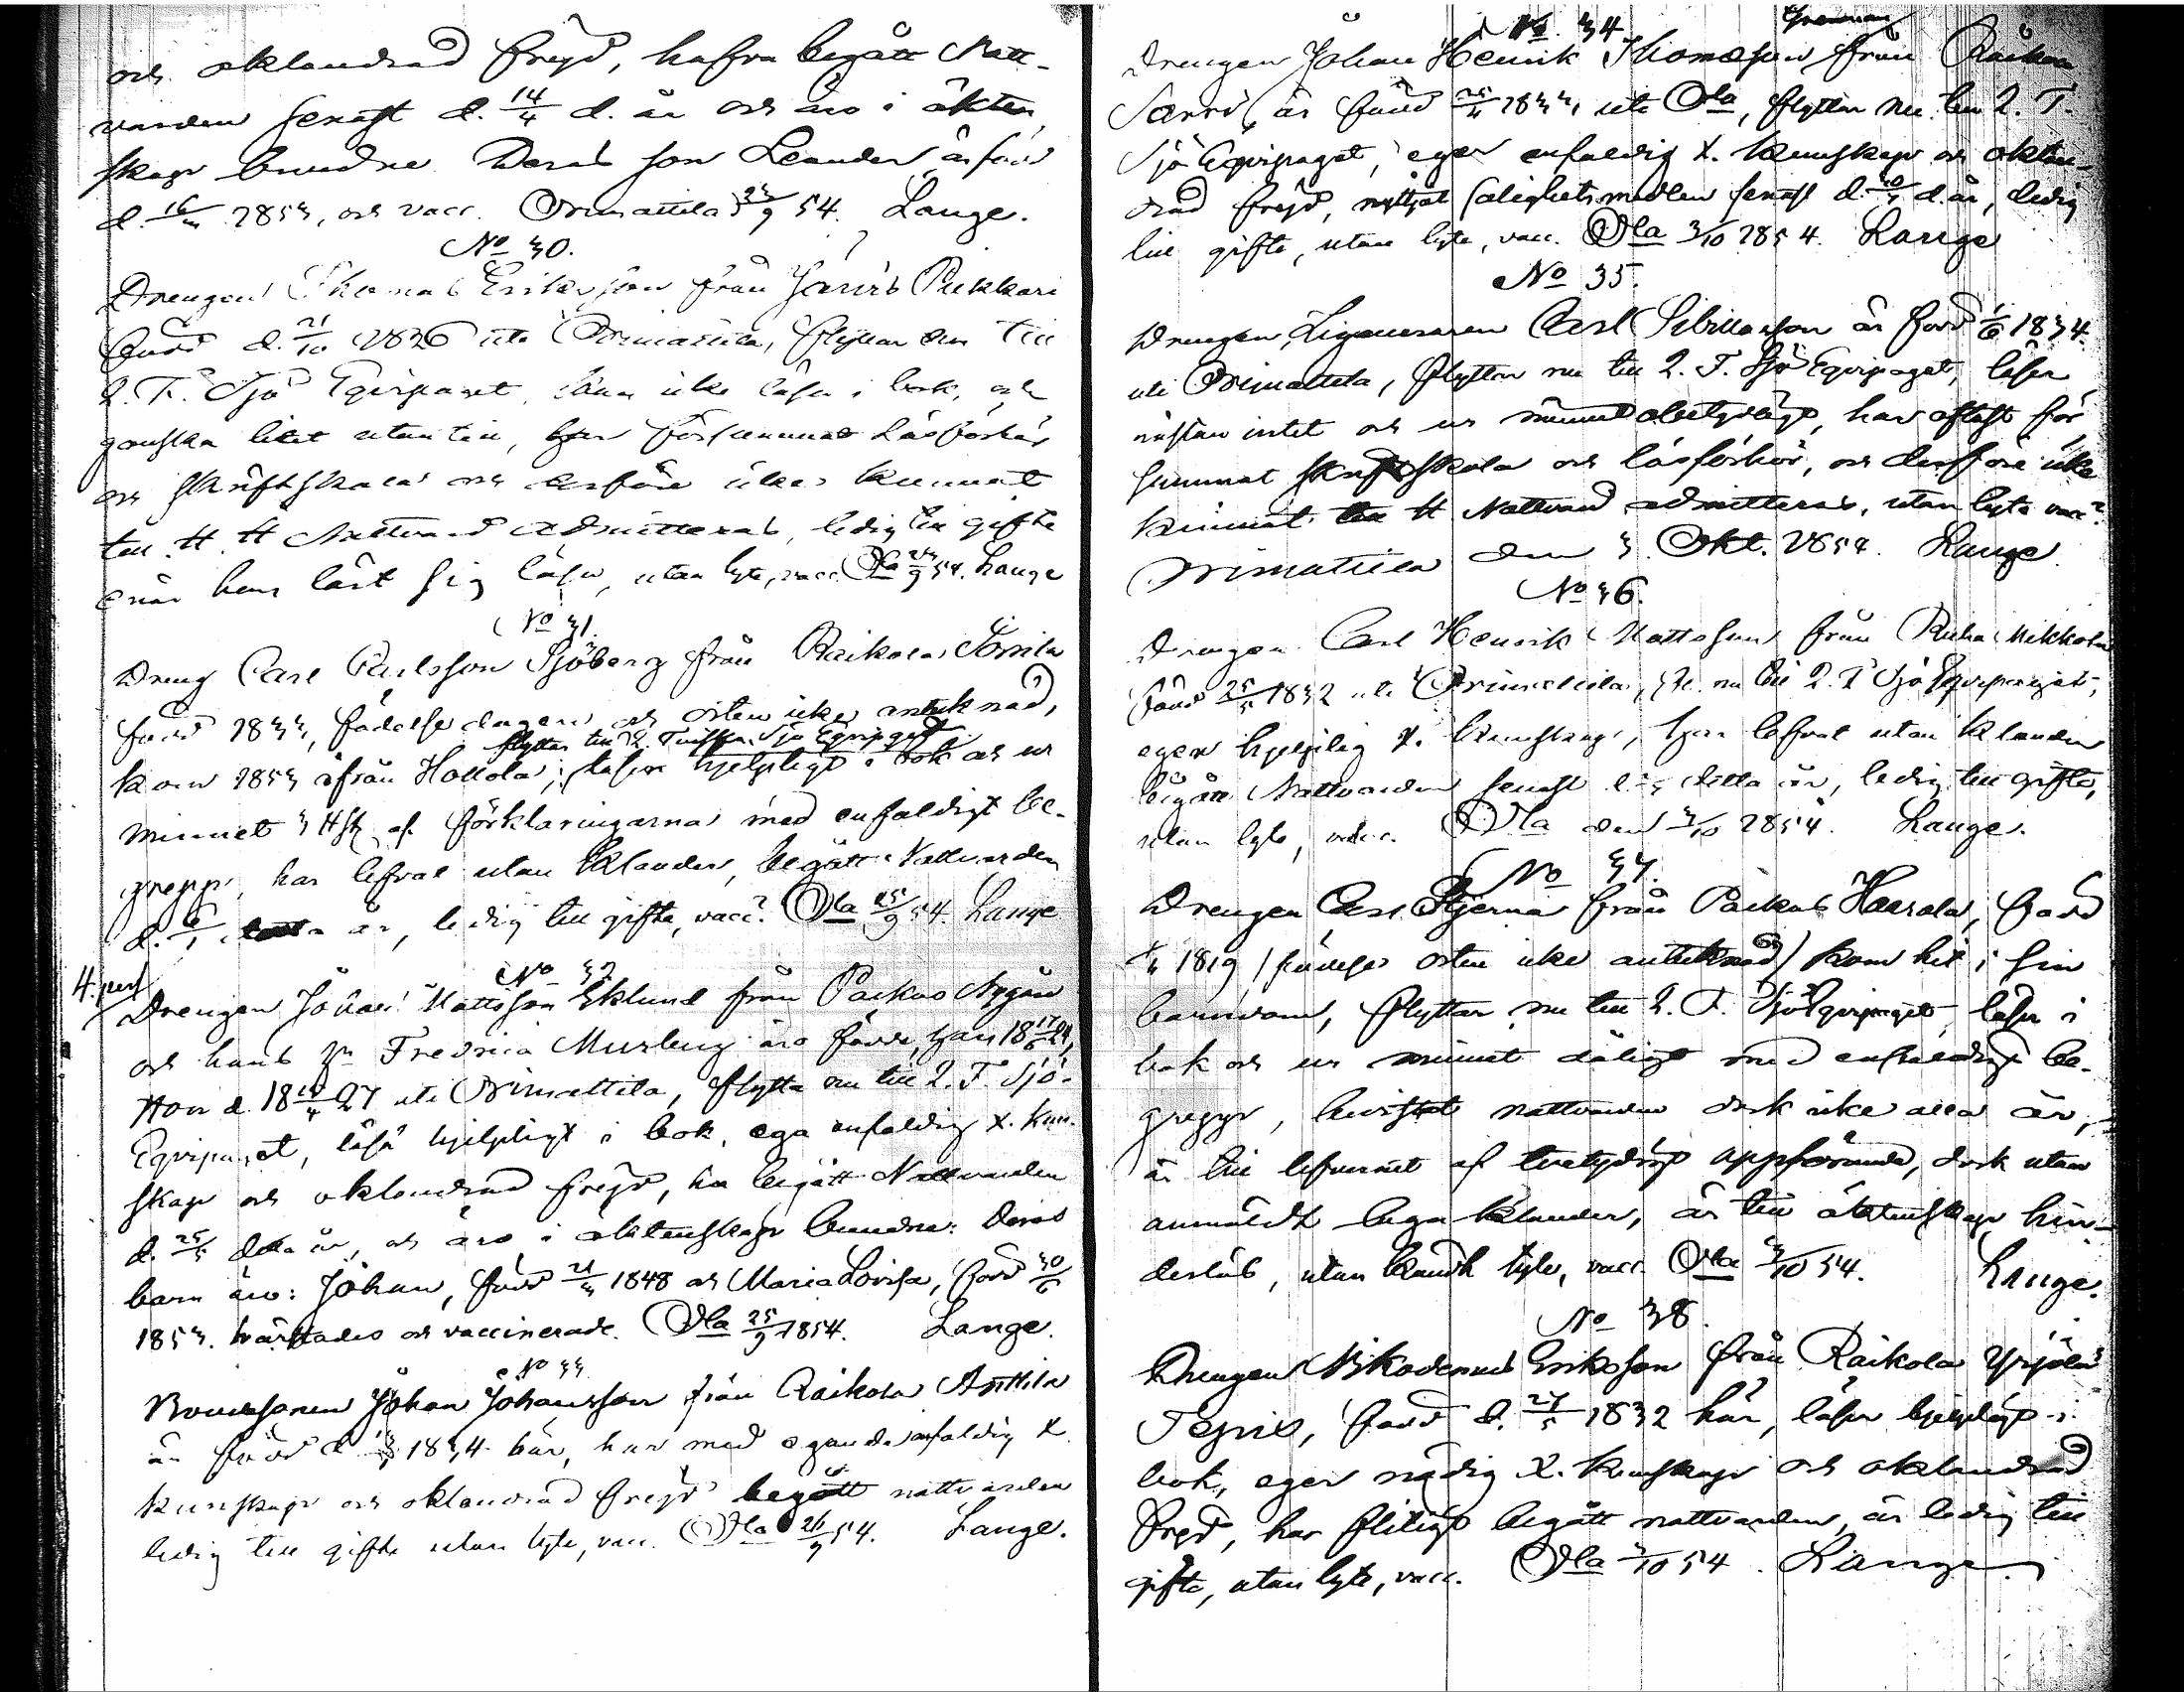 och oklandrad frejd, hafva begått Natt-
varden senast d. 14/4 d. år och äro i äkten
skap bundne. Deras son Leander är född
d. 16/3 1853, och vacc. Orimattila 23/9 54. Lange.
No 30.
Drengen Thomas Eriksson från Jäniö Pukkari
född d. 21/10 1826 uti Orimattila, flyttar nu till
2. F. Sjö Equipaget, kan icke läsa i bok, och
ganska litet utantill, har försummat Läsförhör
och skriftskolor och derföre icke kunnat
till H. H. Nattvard admitteras, ledig till gifte
när han lärt sig läsa, utan lyte, vacc. Ola 23/9 54. Lange
No 31.
Dreng Carl Carlsson Sjöberg från Räikälä
född 1833, födelse dagen och orten icke antecknad,
flyttar till 2. Finska Sjö Equipaget
kom 1853 ifrån Hollola; läser hjelpligt i bok och ur
minnet 3 Hst af förklaringarna med enfaldigt be-
grepp, har lefvat utan klander, begått Nattvarden
d. 6/1 detta år, ledig till gifte, vacc? Ola 25/9 54 Lange
4. pers
No 32
Drengen Johan Mattsson Eklund från Päckas Nygård
och hans h:u Fredrica Murberg äro födde, han 18 17/6 24,
Hon d. 18 18/4 27 uti Orimattila, flytta nu till 2. F. Sjö-
Equipaget, läsa hjelpligt i bok, ega enfaldig X. kun-
skap och oklandrad frejd, ha begått Nattvarden
d. 25/5 detta år, och äro i äktenskap bundna: Deras
barn äro: Johan, född 21/3 1848 och Maria Lovisa, född 30/6
1853. wärftades och vaccinerade. Ola 25/9 1854. Lange.
No 33
Bondsonen Johan Johansson från Räikälä Anttila
är född d 1834 här, har med egande enfaldig X
kunskap och oklandrad frejd begått nattvarden
ledig till gifte utan lyte, vacc. Ola 26/9 54. Lange.
No. 34.
Drengen Johan Henrik Thomasson från
är född 25/4 1833 uti Ola, flyttar nu till 2. F.
Sjö Equipaget, eger enfaldig X. kunskap och oklan-
drad frejd, nyttjat salighetsmedlen senast d. d. år, ledig
till gifte, utan lyte, vacc. Ola 3/10 1854. Lange
No 35.
Drengen, Ligomannen Carl är född 1/6 1834
uti Orimattila, flyttar nu till 2. F. Sjö Equipaget, läser
nästan intet och ur minnet obetydligt, har oftast för
summat skriftskola och läsförhör, och derföre icke
kunnat till H Nattvard admitteras, utan lyte vacc?
Orimattila den 3 Okt. 1854. Lange
No 36.
Drengen Carl Henrik Mattsson från Mikkola
född 25/5 1832 uti Orimattila, fl. nu till 2. F Sjö Equipaget,
eger hjelplig X. kunskap, har lefvat utan klander
begått Nattvarden senast detta år, ledig till gifte,
utan lyte, vacc. Ola den 3/10 1854. Lange.
No 37.
Drengen Carl Stjerna från Päckas Haarala, född
1819 /födelse orten icke antecknad/ kom hit i sin
barndom, flyttar nu till 2. F. Sjö Equipaget, läser i
bok och ur minnet dåligt med enfaldigt be-
grepp, bevistat nattvarden dock icke alla år,
är till lefvernet af tvetydigt uppförande, dock utan
anmäldt laga klander, är till äktenskap hin-
derslös, utan kändt lyte, vacc. Ola 3/10 54. Lange.
No 38.
Drengen Nikodemus Eriksson från Räikälä Yrjölä
född d. 27/5 1832 här, läser hjelpligt i
bok, eger nödig X. kunskap och oklandrad
frejd, har flitigt begått nattvarden, är ledig till
gifte, utan lyte, vacc. Ola 3/10 54. Lange